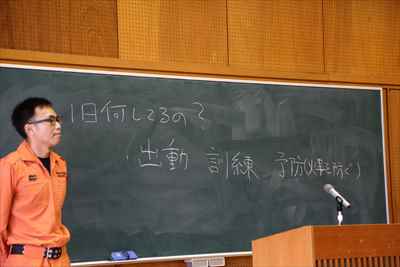 1日何してるの?
・出動 訓練 予防(火事を防ぐ)